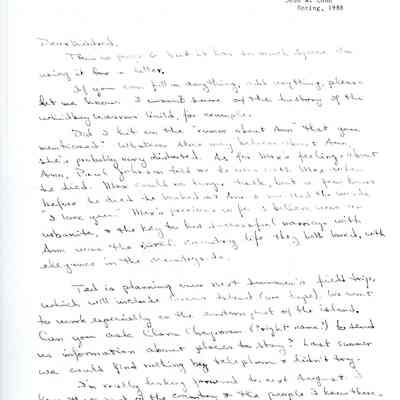 Spring, 1988
Dear
This is page 2 but it has so much space I'm
using it for a letter.
If you can fill in anything, add anything, please
let me know. I want some of the history of the
Whidbey Weavers Guild, for example.
Did I hit on the "rumor about Ann" that you
mentioned? Whatever they may believe about Ann,
she's probably very As for Max's feelings about
Ann, Paul told me he was with Max when
he died. Max could no longer talk, but a few hours
before he died he looked at Ann & the words
"I love you." Max's previous wife, I believe, was an
urbanite, & the key to his successful marriage with
Ann was the rural, country life they both loved, with
elegance in the
Ted is planning our next summer's field trip,
which will include Island (we hope). We want
to work especially on the eastern part of the island.
Can you ask Clara (right name?) to send
us information about places to stay? Last summer
we could find nothing by telephone & didn't try.
I'm really looking forward to next August. I
the country & the people I knew there.